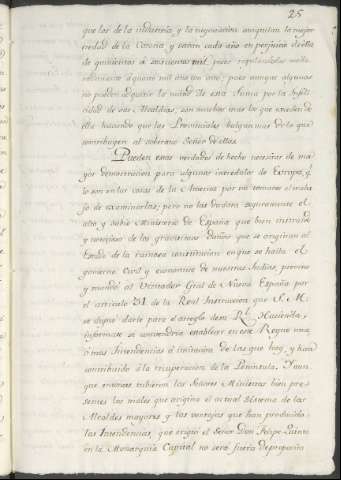 25
que las de la industria, y la negociacion aniquilan la mejor
ciedad de la Corona, y sacan cada año en perjuicio de ella
de quinientos a seiscientos mil pesos regulandolos
solamente á cien mil al año con otro, pues aunque algunos
no pueden adquirir la mitad de esta suma por la infeli-
cidad de sus Alcaldias, son muchos mas los que exceden de
ella haciendo que los Provinciales más que de lo que
contribuyen al soberano Señor de ellos.
Pueden estas verdades de hecho necesitar de ma-
yor demostracion para algunos incredulos de Europa, q.e
lo son en las cosas de la America por no tomarse el traba-
jo de examinarlas; pero no las dudara seguramente el
alto, y sabio Ministerio de España que bien enterado
y consejoso de los gravisimos daños que se originan al
Estado de la ruinosa constitucion en que se halla el
govierno Civil y economico de nuestras Indias, previno
y mandó al Visitador Gral de Nueva España por
el articulo 31 de la Real Instruccion que S. M.
se digno darle para el arreglo de su R.l Hacienda,
informase si convendria establecer en este Reyno una,
ó mas Intendencias á imitacion de las que hay, y han
contribuido á la recuperacion de la Peninsula. Y aun
que entonces tubieron los Señores Ministros bien pre-
sentes los males que origina el actual Sistema de los
Alcaldes mayores y las ventajas que han producido
las Intendencias, que erigió el Señor Don Felipe Quinto
en la Monarquia Capital no será fuera de proposito